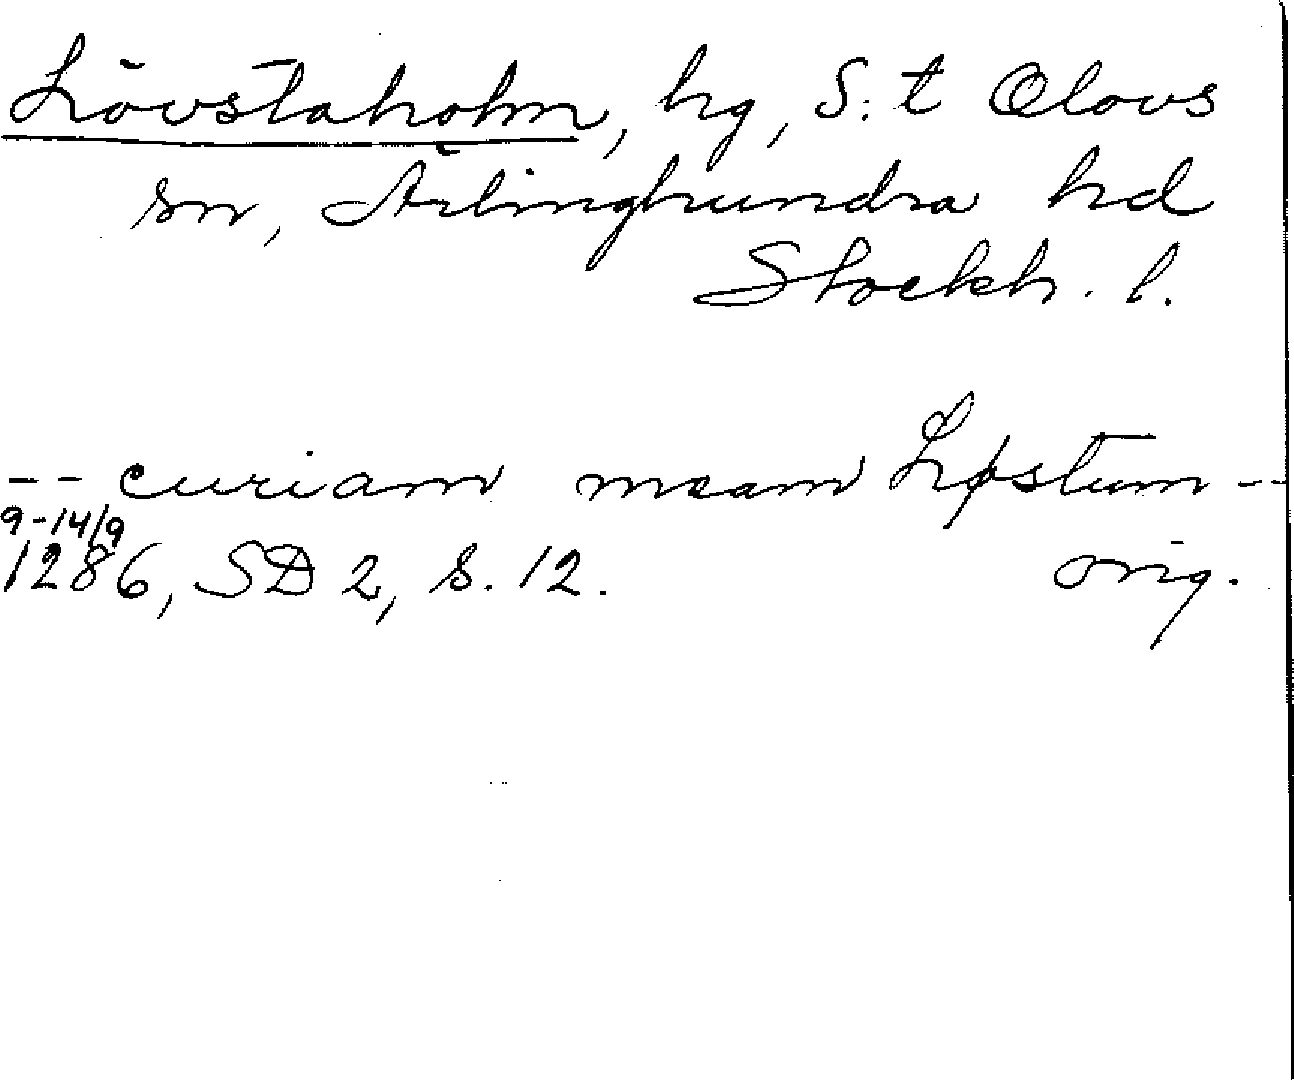 Lövstaholm, hg, S:t Olovs
sn, Ärlinghundra hd
Stockh. l.
-- curiam meam Løstum --
9-14/9
1286, SD 2, s. 12. orig.